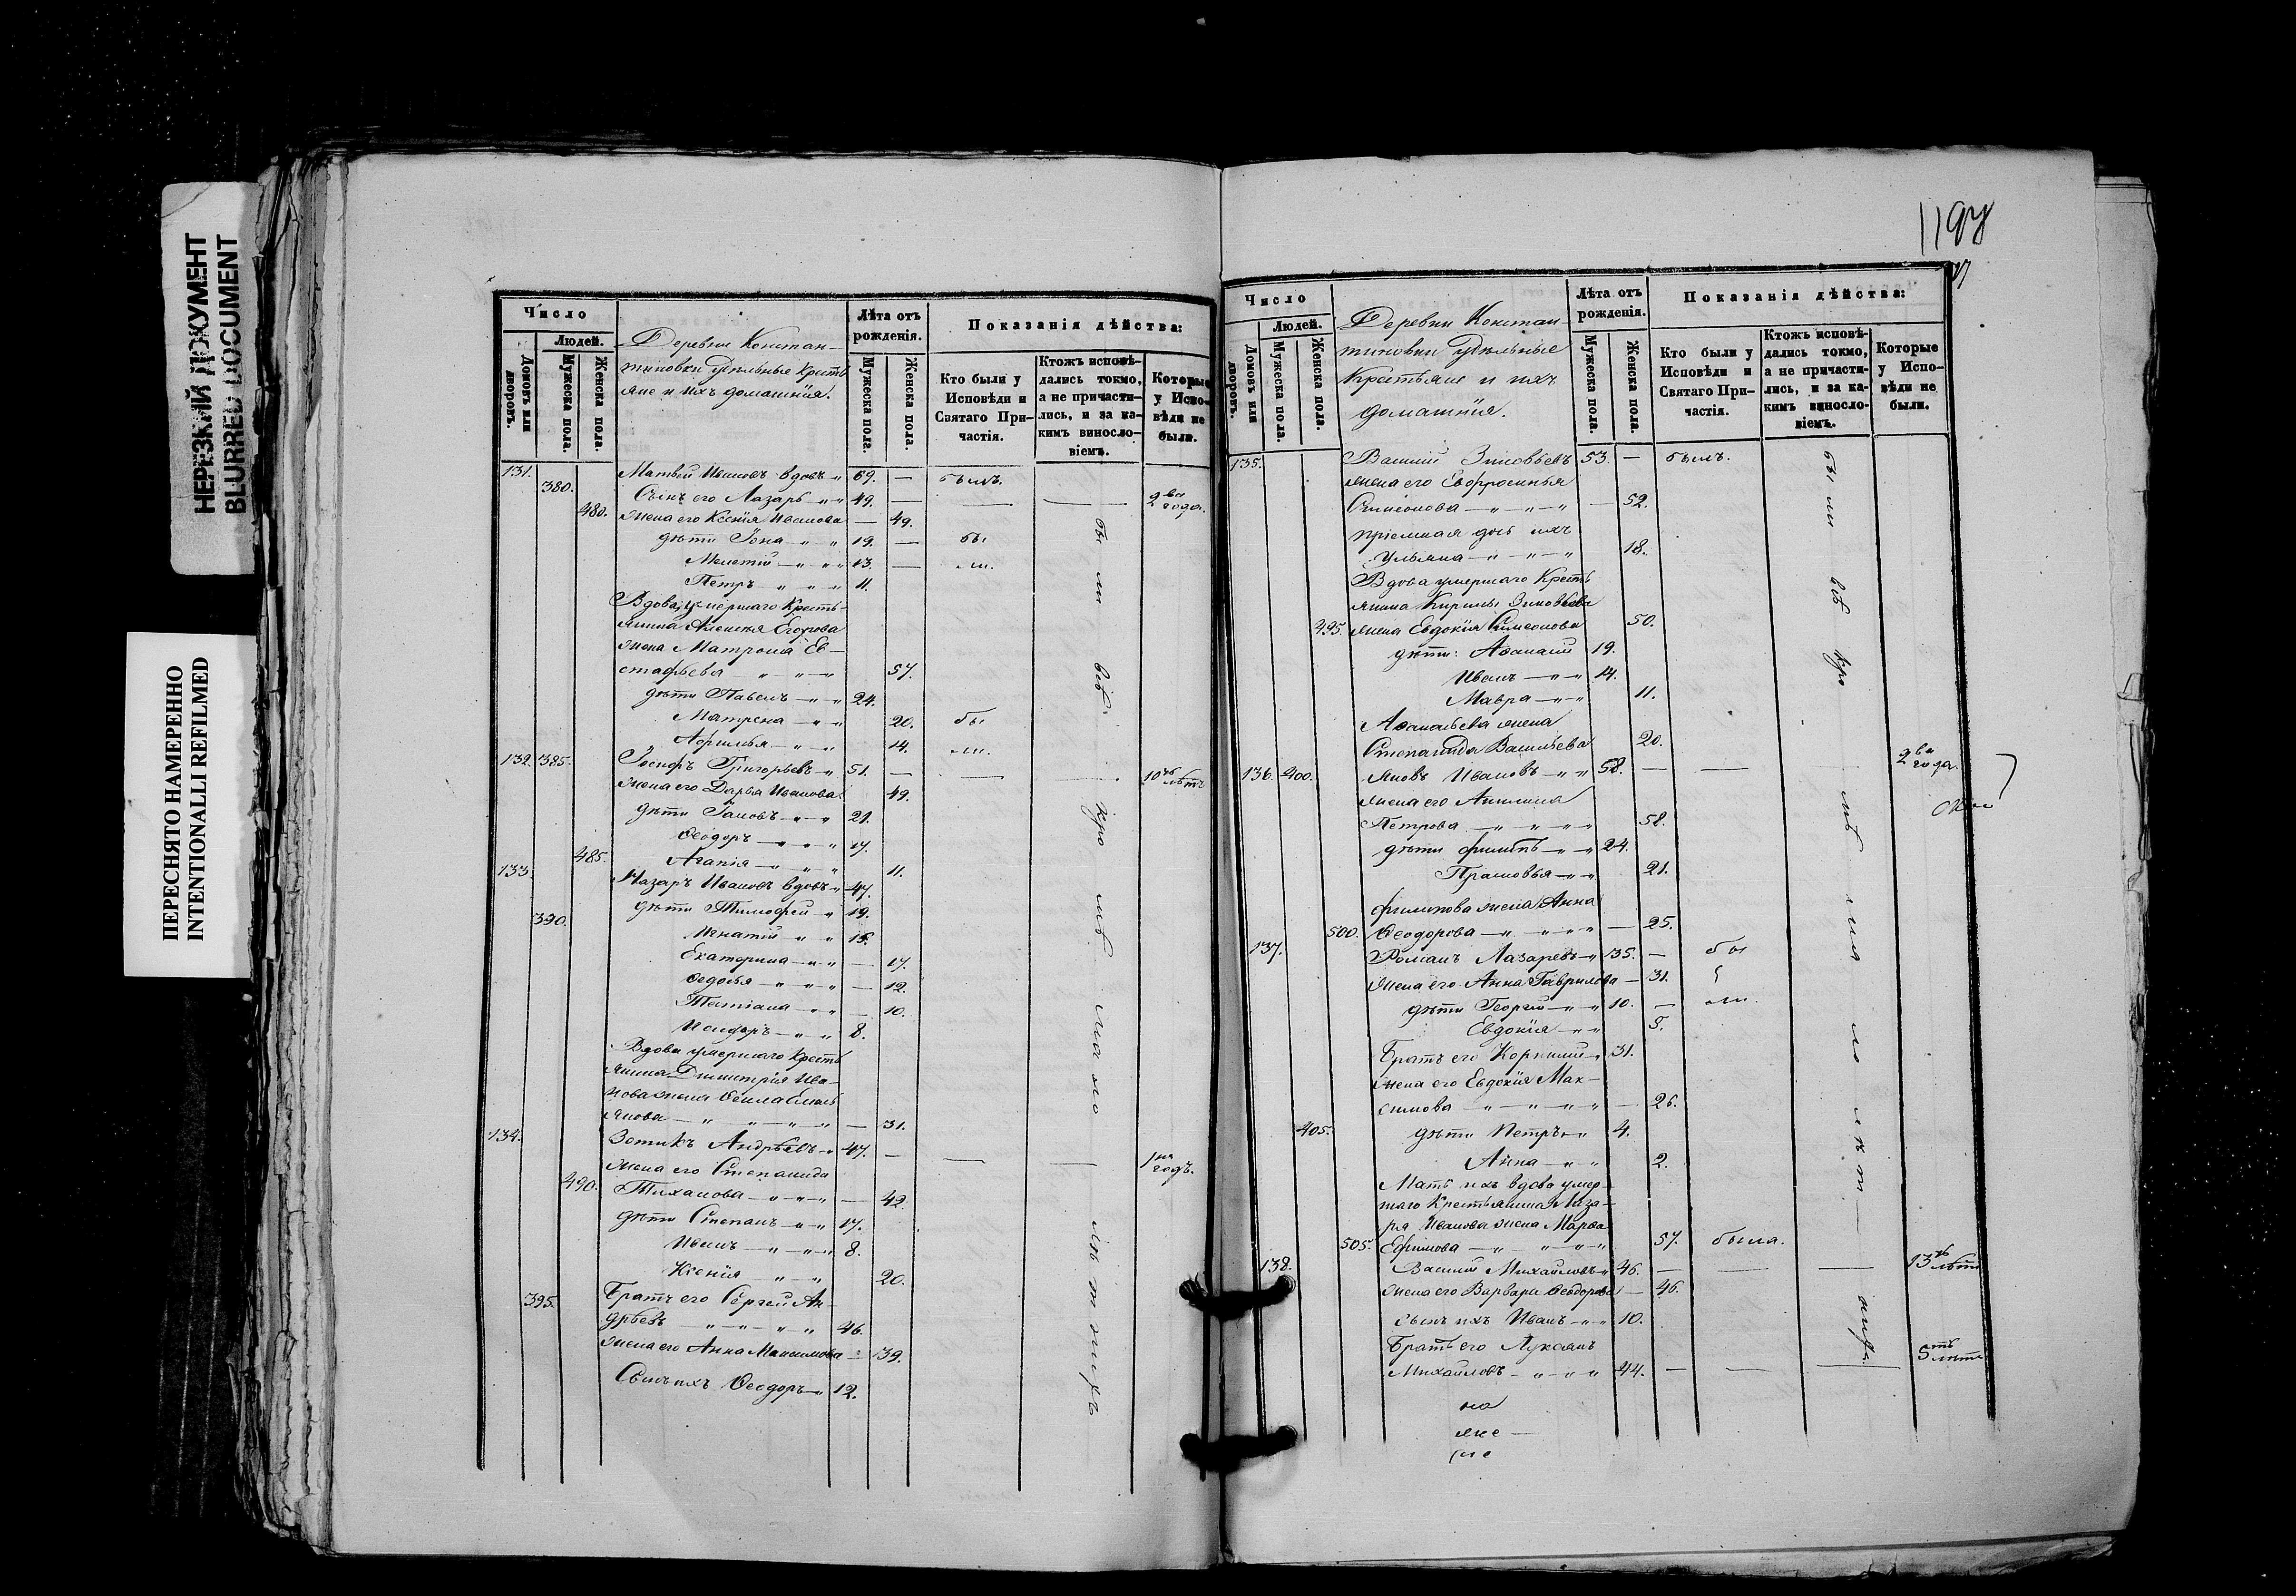 НЕРЕЗКИЙ ДОКУМЕНТ
BLURRED DOCUMENT
ПЕРЕСНЯТО НАМЕРЕННО
INTENTIONALLI REFILMED
Число
Людей.
Домовъ или дворовъ.
Мужеска пола.
Женска пола.
Деревни Констан-
тиновки Удѣльные Кресть
яне и ихъ домашнія.
Лѣта отъ рожденія.
Мужеска пола.
Женска пола.
Показанія дѣйства:
Кто были у Исповѣди и Святаго При-частія.
Ктожъ исповѣ-дались токмо, а не причасти-лись, и за ка-кимъ винословіемъ.
Которые у Испо-вѣди не были.
131. Матвей Ивановъ вдовъ 69. — былъ
380. Сынъ его Лазарь 49. — — — 2 ва года.
480. Жена его Ксенія Иванова — 49.
дѣти Іона 19. — бы
Мелетій 13. — ли.
Петръ 11.
Вдова умершаго Кресть-
янина Алексея Егорова
жена Матрона Ев-
стафьева 57.
дѣти Павелъ 24.
Матрена 20. бы
Афимья 14. ли.
132. 385. Іосифъ Григорьевъ 51. — — — 10 ть лѣтъ
Жена его Дарья Иванова 49.
дѣти Іаковъ 21.
Ѳеодоръ 17.
485. Агапія 11.
133. Назаръ Ивановъ вдовъ 47.
дѣти Тимофей 19.
390. Игнатій 15.
Екатерина — 17.
Ѳедосья — 12.
Татіана — 10.
Исидоръ 8.
Вдова умершаго Кресть
янина Димитрія Ива-
нова жена Ѳекла Емель
янова — 31.
134. Зотикъ Андрѣевъ 47. — — — 1 нъ годъ.
Жена его Степанида
490. Тиханова — 42.
дѣти Степанъ 17.
Иванъ 8.
Ксенія 20.
395. Братъ его Сергей Ан-
дрѣевъ 46.
Жена его Анна Максимова — 39.
Сынъ ихъ Ѳеодоръ 12.
бы ли всѣ кро мѣ мало лѣтнихъ
1198
Число
Людей.
Домовъ или дворовъ.
Мужеска пола.
Женска пола.
Деревни Констан-
тиновки Удѣльные
Крестьяне и ихъ
домашнія.
Лѣта отъ рожденія.
Мужеска пола.
Женска пола.
Показанія дѣйства:
Кто были у Исповѣди и Святаго При-частія.
Ктожъ исповѣ-дались токмо, а не причасти-лись, и за ка-кимъ винословіемъ.
Которые у Испо-вѣди не были.
135. Василій Зиновьевъ 53. — былъ.
жена его Евфросинья
Симіонова — 52.
пріемная дочь ихъ
Ульяна 18.
Вдова умершаго Кресть
янина Кирилы Зиновьева
495. жена Евдокія Симеонова 50.
дѣти: Аѳанасій 19.
Иванъ 14.
Мавра 11.
Аѳанасьева жена
Степанида Васильева 20.
136. 400. Яковъ Ивановъ 58. — — — 2 ва года.
жена его Акилина
Петрова 58.
дѣти Филипъ 24.
Прасковья 21.
Филипова жена Анна
500. Ѳеодорова — 25.
137. Романъ Лазаревъ 35. — бы
Жена его Анна Гаврилова — 31.
дѣти Георгій 10. — ли.
Евдокія 5.
Братъ его Корнилій 31.
жена его Евдокія Мак-
симова — 26.
405. дѣти Петръ 4.
Анна 2.
Мать ихъ вдова умер-
шаго Крестьянина Лаза-
ря Иванова жена Марѳа
505. Ефимова 57. была.
138. Василій Михайловъ 46. — — — 13 ть лѣтъ
Жена его Варвара Ѳеодорова — 46.
сынъ ихъ Иванъ 10.
Братъ его Лукіанъ
Михайловъ 44. — — — 5 ть лѣтъ